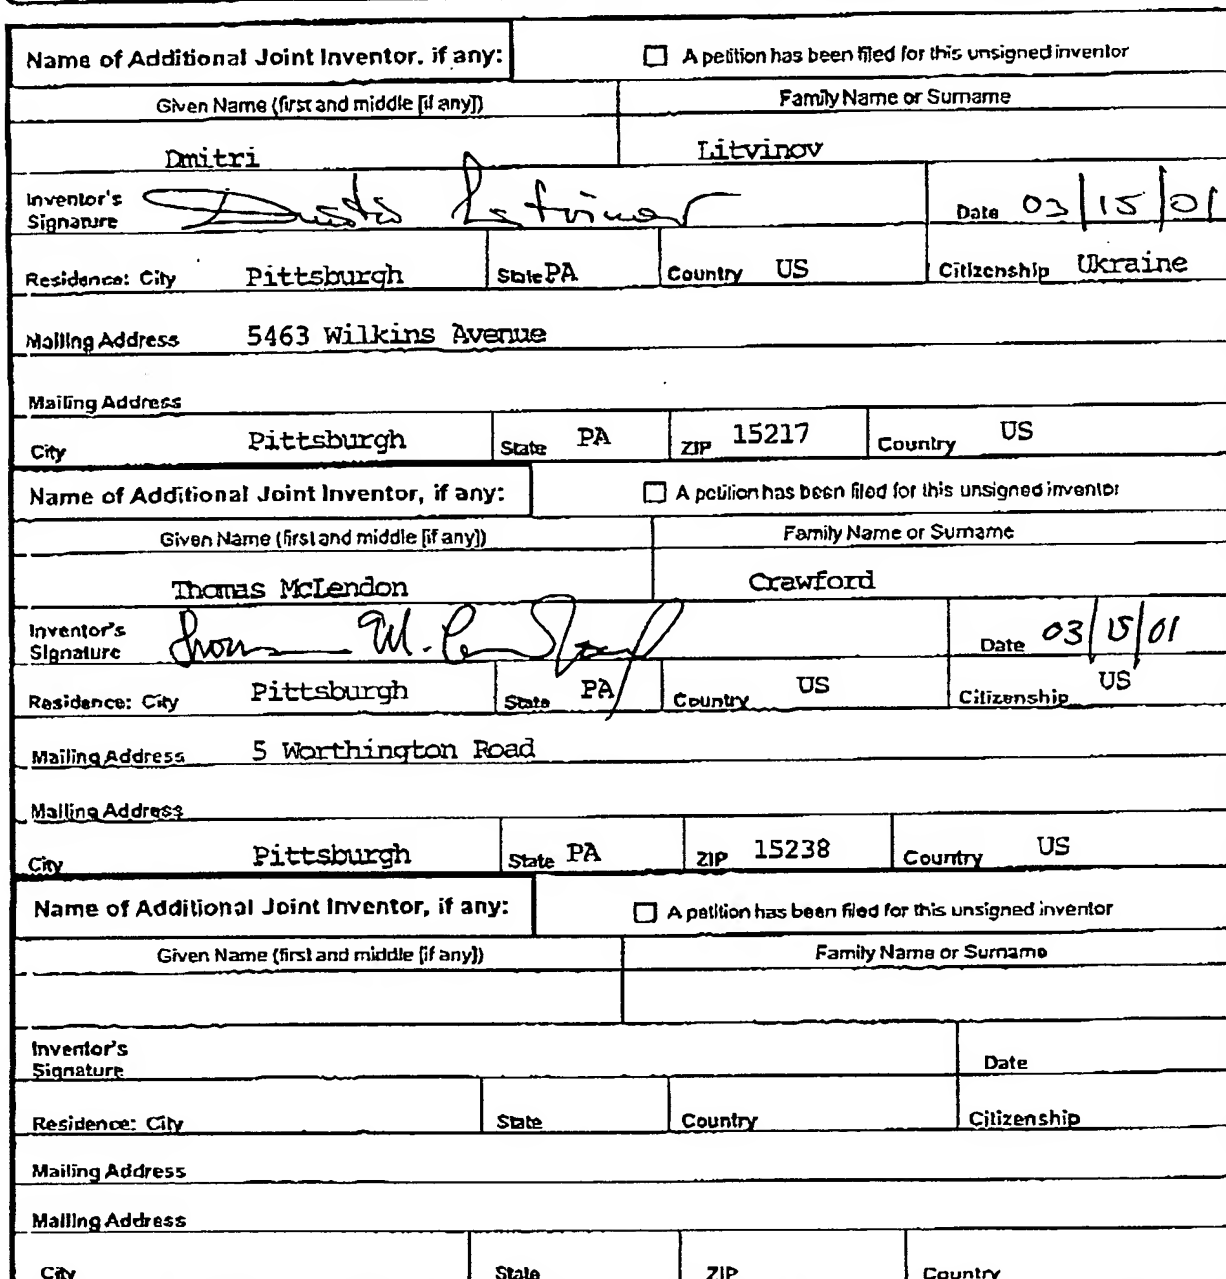 Name of Additional Joint Inventor, if any: ☐ A petition has been filed for this unsigned inventor
Given Name (first and middle [if any]) Family Name or Surname
Dmitri Litvinov
Inventor's Signature Dmitri Litvinov Date 03/15/01
Residence: City Pittsburgh State PA Country US Citizenship Ukraine
Mailing Address 5463 Wilkins Avenue
Mailing Address
City Pittsburgh State PA ZIP 15217 Country US
Name of Additional Joint Inventor, if any: ☐ A petition has been filed for this unsigned inventor
Given Name (first and middle [if any]) Family Name or Surname
Thomas McLendon Crawford
Inventor's Signature Thomas M. Crawford Date 03/15/01
Residence: City Pittsburgh State PA Country US Citizenship US
Mailing Address 5 Worthington Road
Mailing Address
City Pittsburgh State PA ZIP 15238 Country US
Name of Additional Joint Inventor, if any: ☐ A petition has been filed for this unsigned inventor
Given Name (first and middle [if any]) Family Name or Surname
Inventor's Signature Date
Residence: City State Country Citizenship
Mailing Address
Mailing Address
City State ZIP Country